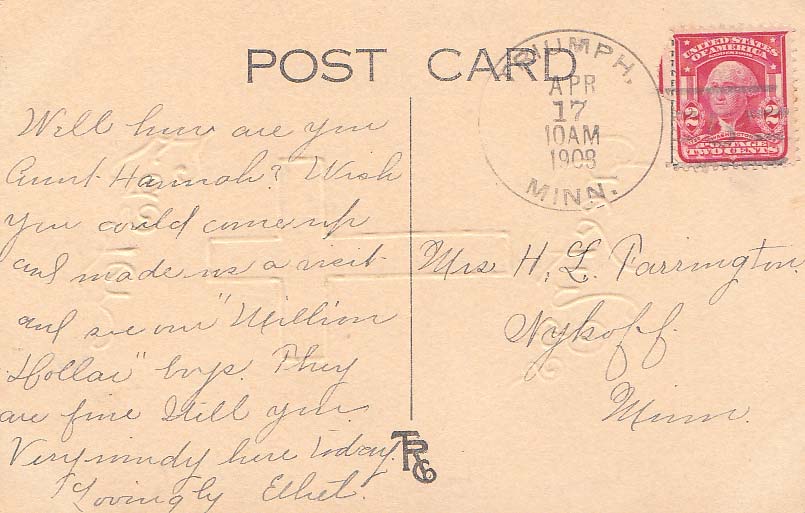 POST CARD
TRIUMPH,
APR
17
10AM
1908
MINN.
UNITED STATES
OF AMERICA
2 2
POSTAGE
TWO CENTS
Well how are you
Aunt Hannah? Wish
you could come up
and made us a visit
and see our "Million
Dollar" boys. They
are fine
Very windy here today.
Lovingly Ethel.
Mrs H. L. Farrington.
Wykoff.
Minn.
TRCo